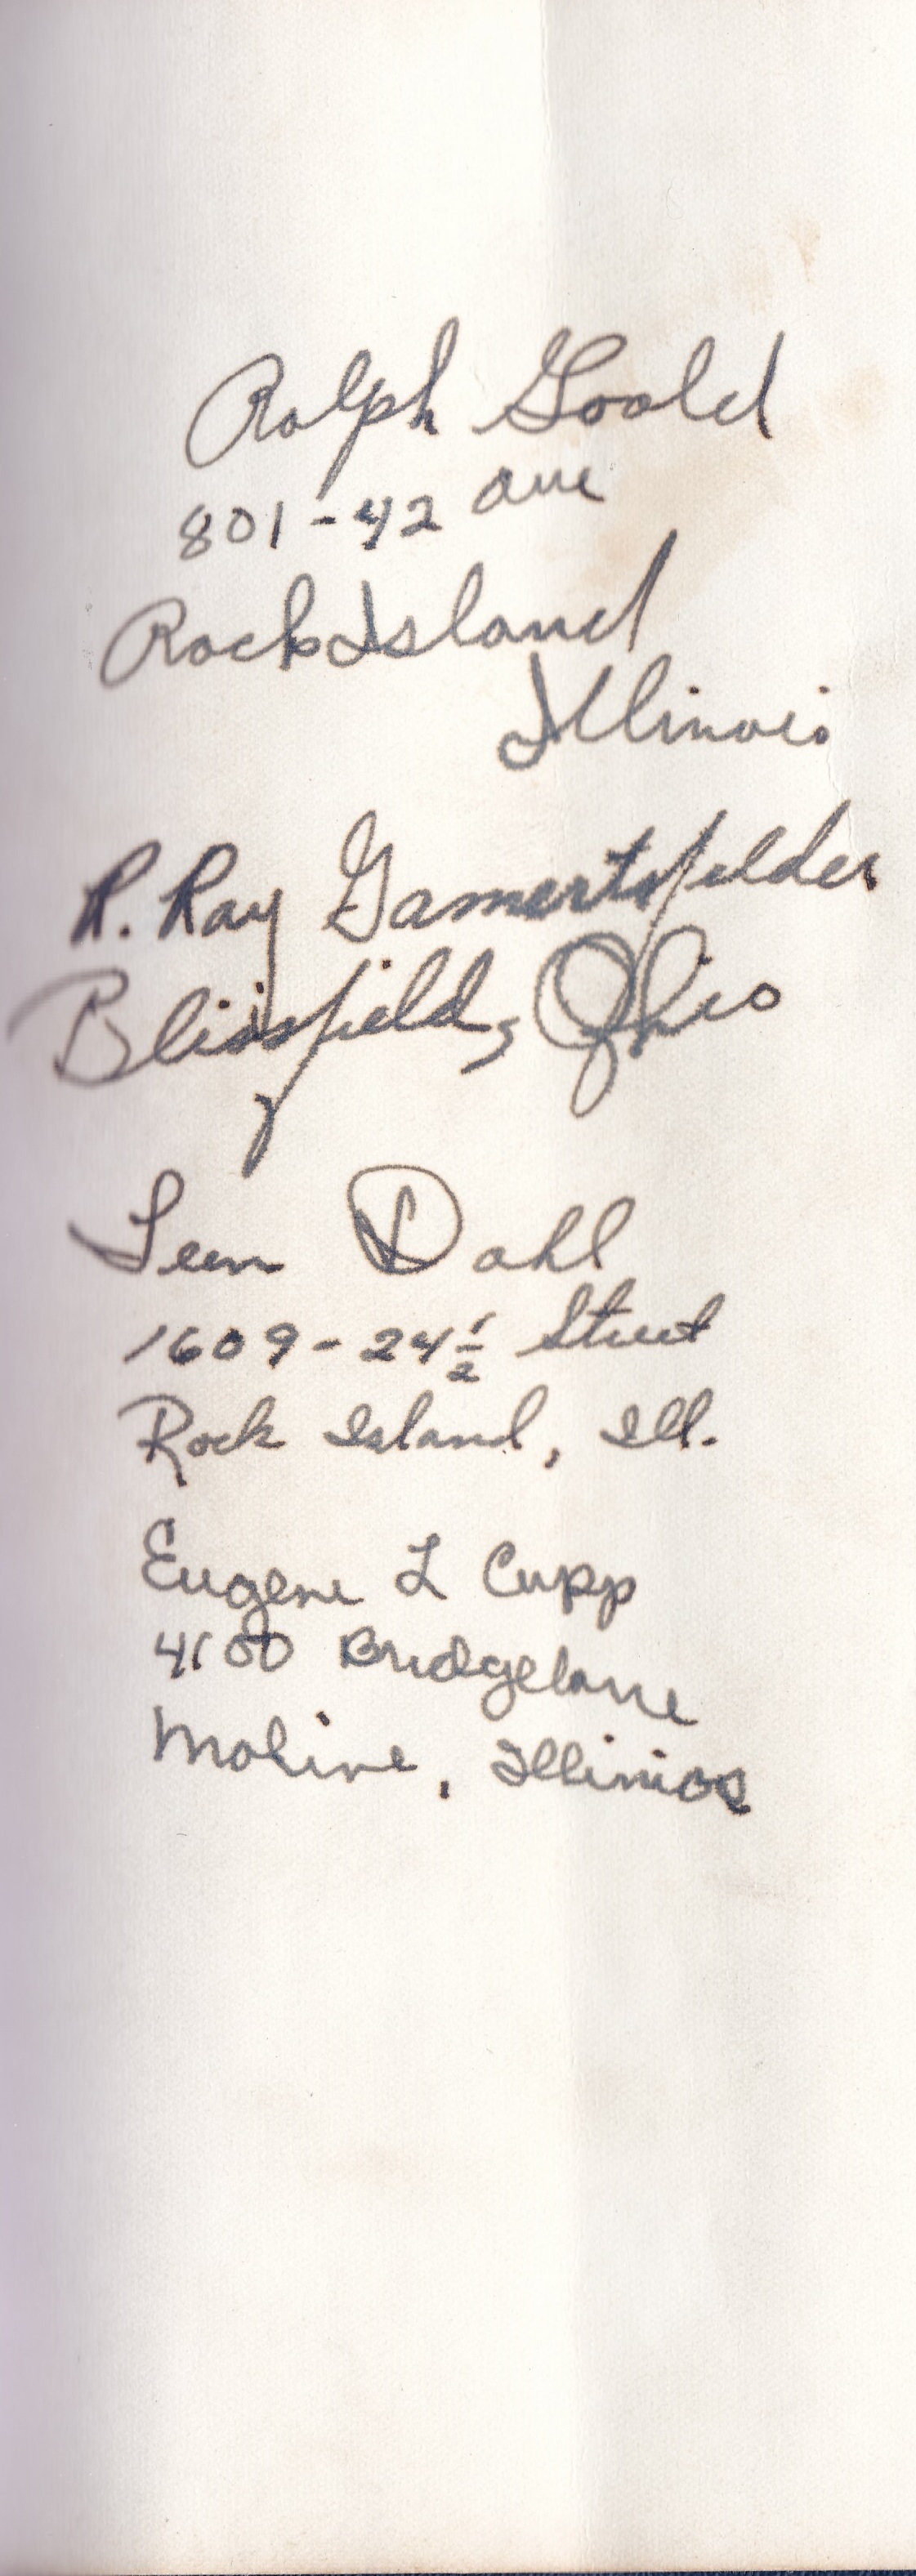 Ralph Goold
801-42 Ave
Rock Island
Illinois
R. Ray Gamertsfelder
Blissfield, Ohio
Dahl
1609-24 1/2 Street
Rock Island, Ill.
Eugene L Cupp
4100 Bridgelane
Moline, Illinios